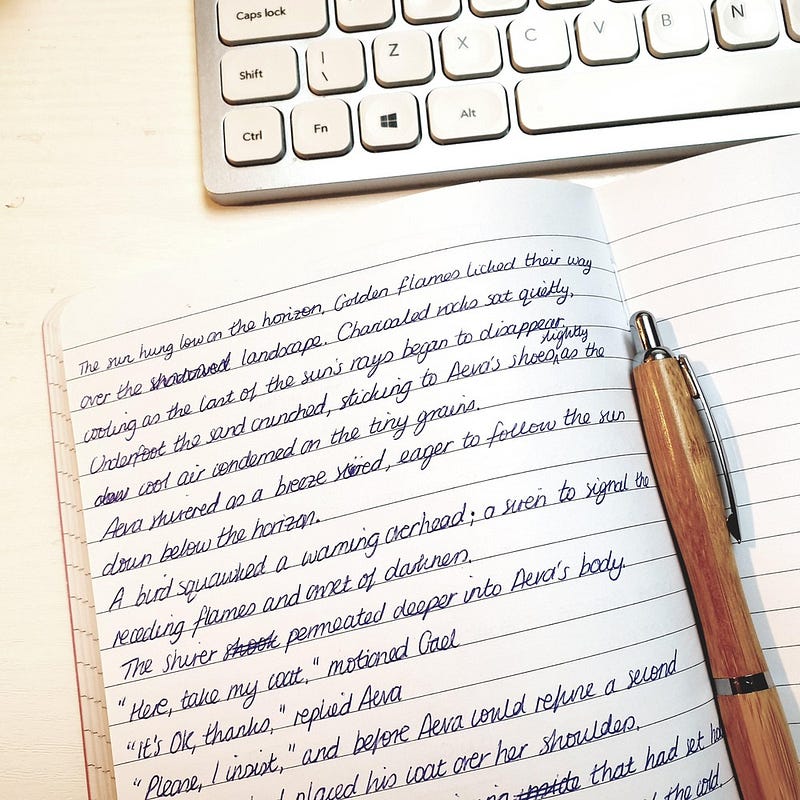 Caps lock
Shift | \ Z X C V B N
Ctrl Fn Alt
The sun hung low on the horizon. Golden flames licked their way
over the shadowed landscape. Charcoaled rocks sat quietly,
cooling as the last of the sun's rays began to disappear.
Underfoot the sand crunched, sticking to Aeva's shoes slightly as the
cool air condensed on the tiny grains.
Aeva shivered as a breeze stirred, eager to follow the sun
down below the horizon.
A bird squawked a warning overhead; a siren to signal the
receding flames and onset of darkness.
The shiver shook permeated deeper into Aeva's body.
"Here, take my coat," motioned Cael
"It's OK, thanks," replied Aeva
"Please, I insist," and before Aeva could refuse a second
placed his coat over her shoulders.
inside that had set
the cold.